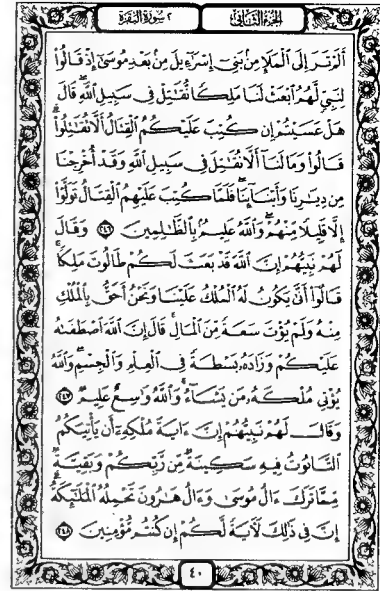 الجزء الثاني
٢ سورة البقرة
أَلَمْ تَرَ إِلَى ٱلْمَلَإِ مِنۢ بَنِىٓ إِسْرَٰٓءِيلَ مِنۢ بَعْدِ مُوسَىٰٓ إِذْ قَالُوا۟
لِنَبِىٍّ لَّهُمُ ٱبْعَثْ لَنَا مَلِكًا نُّقَٰتِلْ فِى سَبِيلِ ٱللَّهِ ۖ قَالَ
هَلْ عَسَيْتُمْ إِن كُتِبَ عَلَيْكُمُ ٱلْقِتَالُ أَلَّا تُقَٰتِلُوا۟ ۖ
قَالُوا۟ وَمَا لَنَآ أَلَّا نُقَٰتِلَ فِى سَبِيلِ ٱللَّهِ وَقَدْ أُخْرِجْنَا
مِن دِيَٰرِنَا وَأَبْنَآئِنَا ۖ فَلَمَّا كُتِبَ عَلَيْهِمُ ٱلْقِتَالُ تَوَلَّوْا۟
إِلَّا قَلِيلًا مِّنْهُمْ ۗ وَٱللَّهُ عَلِيمٌۢ بِٱلظَّٰلِمِينَ ﴿٢٤٦﴾ وَقَالَ
لَهُمْ نَبِيُّهُمْ إِنَّ ٱللَّهَ قَدْ بَعَثَ لَكُمْ طَالُوتَ مَلِكًا ۚ
قَالُوٓا۟ أَنَّىٰ يَكُونُ لَهُ ٱلْمُلْكُ عَلَيْنَا وَنَحْنُ أَحَقُّ بِٱلْمُلْكِ
مِنْهُ وَلَمْ يُؤْتَ سَعَةً مِّنَ ٱلْمَالِ ۚ قَالَ إِنَّ ٱللَّهَ ٱصْطَفَىٰهُ
عَلَيْكُمْ وَزَادَهُۥ بَسْطَةً فِى ٱلْعِلْمِ وَٱلْجِسْمِ ۖ وَٱللَّهُ
يُؤْتِى مُلْكَهُۥ مَن يَشَآءُ ۚ وَٱللَّهُ وَٰسِعٌ عَلِيمٌ ﴿٢٤٧﴾
وَقَالَ لَهُمْ نَبِيُّهُمْ إِنَّ ءَايَةَ مُلْكِهِۦٓ أَن يَأْتِيَكُمُ
ٱلتَّابُوتُ فِيهِ سَكِينَةٌ مِّن رَّبِّكُمْ وَبَقِيَّةٌ
مِّمَّا تَرَكَ ءَالُ مُوسَىٰ وَءَالُ هَٰرُونَ تَحْمِلُهُ ٱلْمَلَٰٓئِكَةُ ۚ
إِنَّ فِى ذَٰلِكَ لَءَايَةً لَّكُمْ إِن كُنتُم مُّؤْمِنِينَ ﴿٢٤٨﴾
٤٠